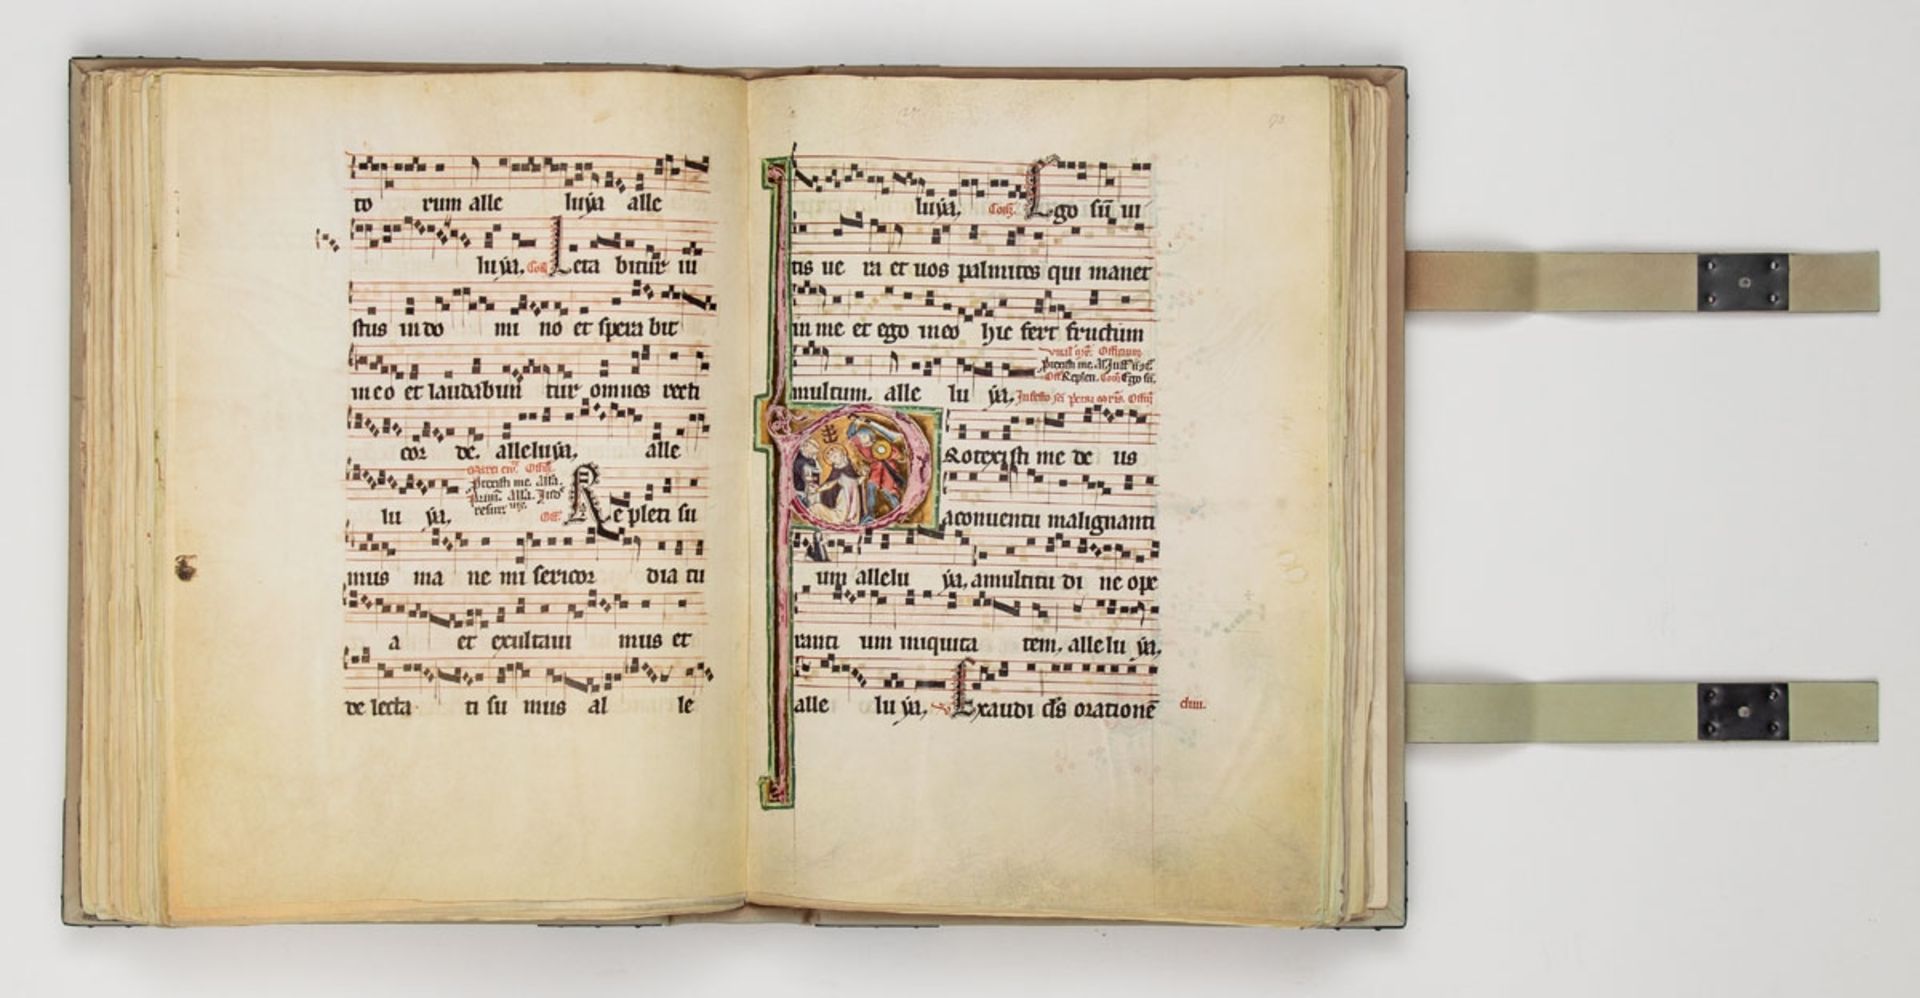 to rum alle luya alle
luya, Leta bitur iu
stus in do mi no et spera bit
in eo et laudabun tur omnes recti
cor de. alleluya, alle
Protexisti me. Alla.
lu ya, Re pleti su
mus ma ne mi sericor dia tu
a et exultaui mus et
de lecta ti su mus al le
93
luya, Co Ego sum ui
tis ue ra et uos palmites qui manet
in me et ego in eo hic fert fructum
Officium
Protexisti me.
Off Replen. Com Ego su.
multum, alle lu ya, In festo sci petri mris. Offm
P Rotexisti me de us
a conuentu malignanti
um allelu ya, a multitu di ne ope
ranti um iniquita tem, alle lu ya,
alle lu ya, Exaudi ds orationē